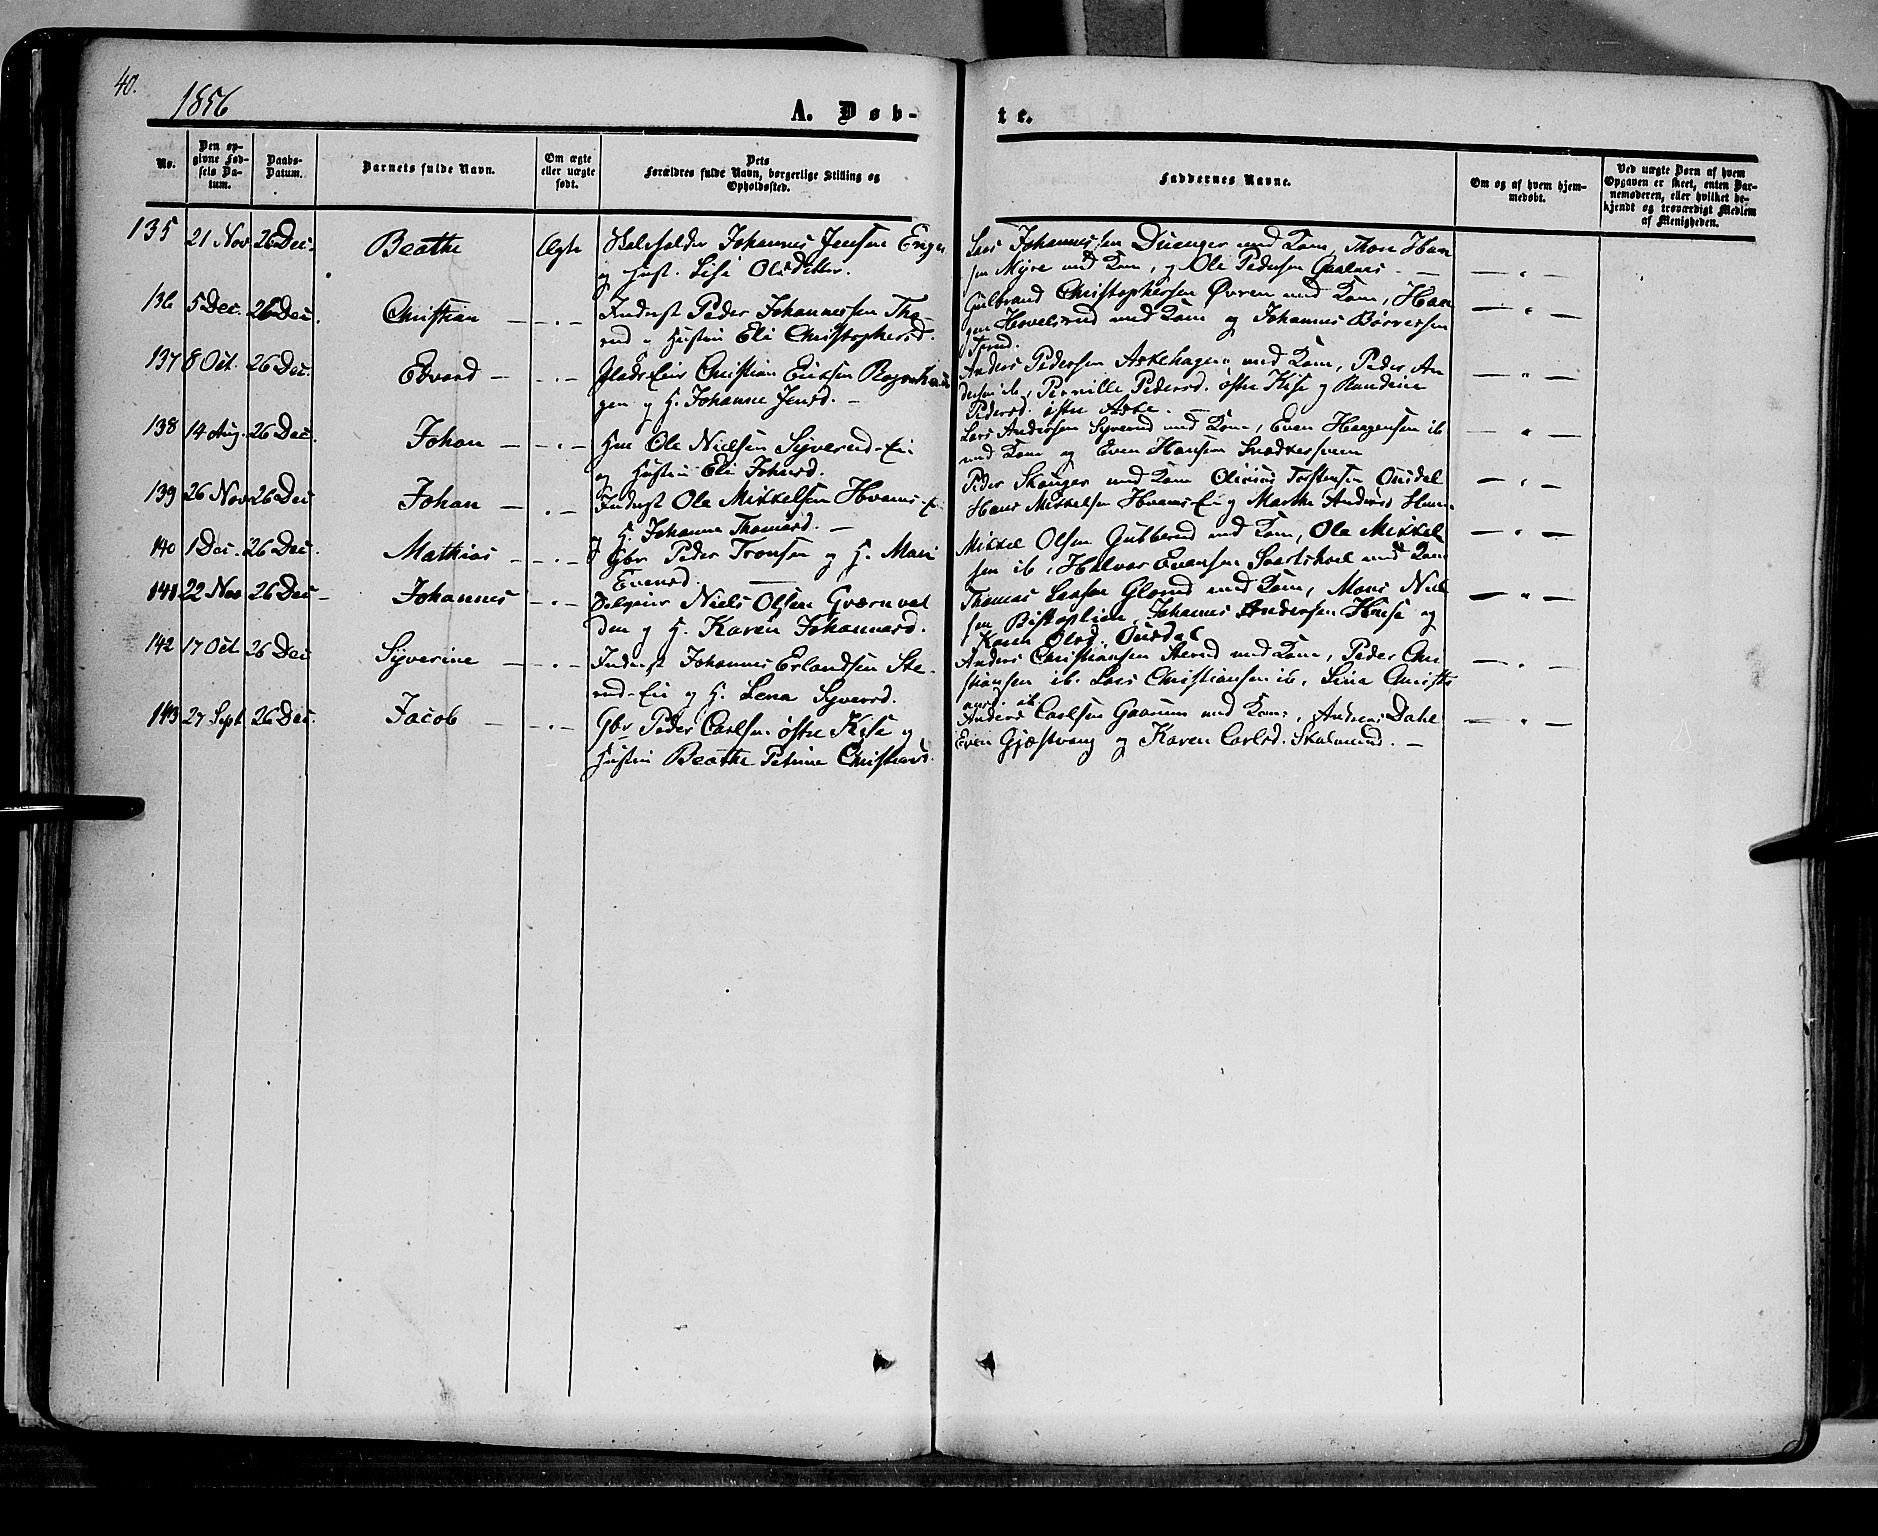 40.
1856
A. Døb-
te.
No.
Den op-
givne Fød-
sels Da-
tum.
Daabs-
Datum.
Barnets fulde Navn.
Om ægte
eller uægte
født.
Dets
Forældres fulde Navn, borgerlige Stilling og
Opholdssted.
Faddernes Navne.
Om og af hvem hjem-
medøbt.
Ved uægte Børn af hvem
Opgaven er skeet, enten Bar-
nemoderen, eller hvilket be-
kjendt og troværdigt Medlem
af Menigheden.
135 21 Nov 26 Dec. Beathe Ægte Johannes Jensen
og Hust. Lisi Olsdatter.
Lars Johannessen Duenger med Kone, Thore Han
sen Myre med Kone, og Ole Pedersen
136 5 Dec. 26 Dec. Christian - " - Inderst Peder Johannesen
rud og Hustru Eli Christophersd.
Gulbrand Christophersen Øvren med Kone, Haa
gen Hovelsrud med Kone og Johannes Børresen
137 8 Oct. 26 Dec. Edvard - " - Plads-Eier Christian Ericsen Rognhau
gen og H. Johanne Jensd. -
Anders Pedersen Askehagen med Kone, Peder An
dersen ib, Pernille Pedersd. østre Kise og Randine
Pedersd. østre Aske. -
138 14 Aug. 26 Dec. Johan - " - Hmd Ole Nielsen Syverud-Ei
og Hustru Eli Johansd.
Lars Andersen Syverud med Kone, Even Haagensen ib
med Kone og Even Hansen Snekkersveen
139 26 Nov 26 Dec Johan - " - Inderst Ole Mikkelsen Hvams-Ei
og H. Johanne Thomasd. -
Peder Skanger med Kone Olivius Torstensen Ousdal
Hans Mikkelsen Hvams-Ei og Marthe Andersd
140 1 Dec. 26 Dec. Mathias - " - Gbr Peder Tronsen og H. Mari
Evensd.
Mikkel Olsen Gubberud med Kone, Ole Mikkel
sen ib, Halvor Evensen med Kone
141 22 Nov 26 Dec - Johannes - " - Niels Olsen Qværnvol
den og H. Karen Johannesd.
Thomas Larsen Glorud med Kone, Mons Niel
sen Bispoplien, Johannes Andersen og
Karen Olsd. Ousdal
142 17 Oct 26 Dec Syverine - " - Inderst Johannes Erlandsen Ste-
rud-Ei og H. Lena Syversd.
Anders Christiansen Sterud med Kone, Peder Chri
stiansen ib. Lars Christiansen ib, Lina Christi
ansd. ib.
143 27 Sept 26 Dec. Jacob - " - Gbr Peder Carlsen østre Kise og
Hustru Beathe Petrine Christiansd.
Anders Carlsen Gaarum med Kone, Andreas Dahl
Even Gjæstvang og Karen Carlsd. Skulmerud. -